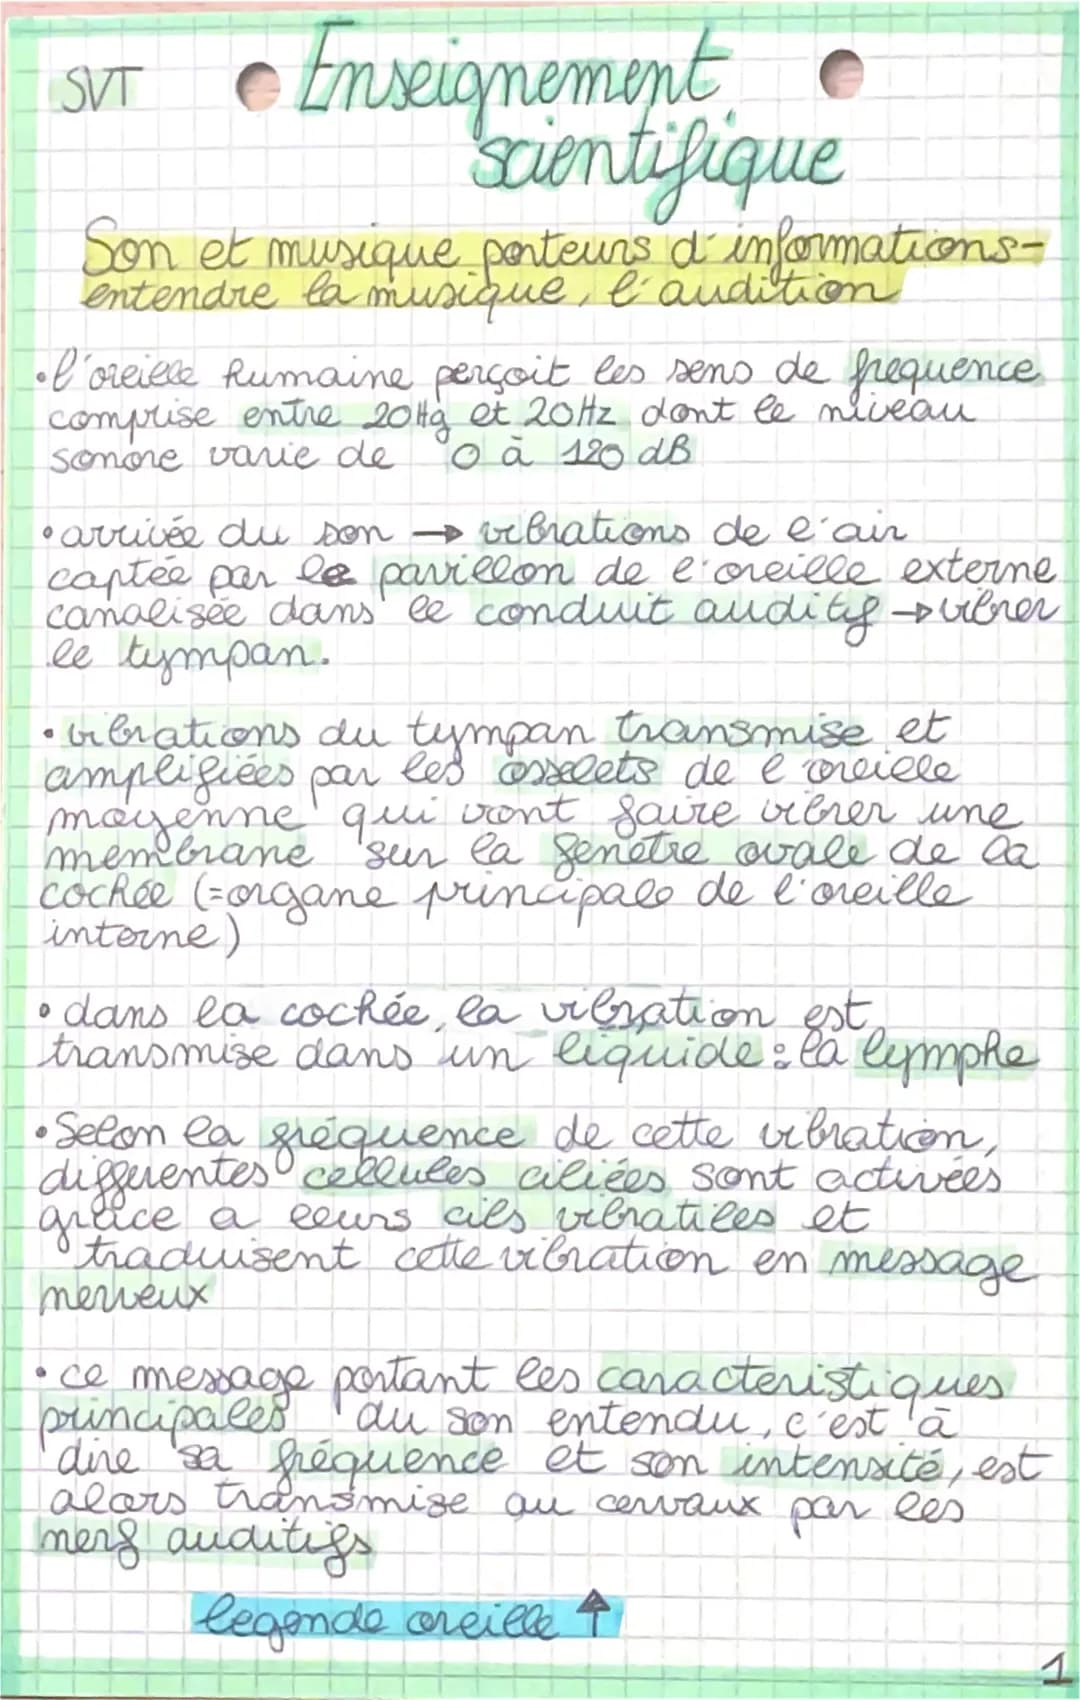 SVT
Enseignement
scientifique
Son et musique porteurs d'informations-
entendre la musique, l'audition
• l'oreille humaine perçoit les sons de frequence
comprise entre 20Hg et 20Hz dont le niveau
sonore varie de 0 à 120 dB
• arrivée du son → vibrations de l'air
captée par le pavillon de l'oreille externe
canalisée dans le conduit auditif → vibrer
le tympan.
• vibrations du tympan transmise et
amplifiées par les osselets de l'oreille
moyenne qui vont faire vibrer une
membrane sur la fenetre ovale de la
cochée (=organe principale de l'oreille
interne)
• dans la cochée, la vibration est
transmise dans un liquide : la lymphe
• Selon la fréquence de cette vibration,
differentes cellules ciliées sont activées
grâce a leurs cils vibratiles et
traduisent cette vibration en message
nerveux
• ce message portant les caracteristiques
principales du son entendu, c'est à
dire sa fréquence et son intensité, est
alors transmise au cervaux par les
nerf auditifs
legende oreille ↑
1